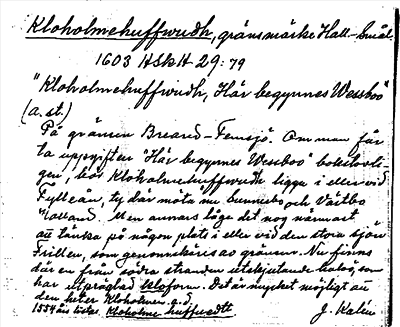 Kloholmehuffwudh, gränsmärke Hall-Smål.
1603 HSkH 29:79
"Kloholmehuffwudh, Här begynnes Wessboo"
(a. st.)
På gränsen Breared-Femsjö. Om man får
ta uppgiften "Här begynnes Wessboo" bokstavli-
gen, bör Kloholmehuffwudh ligga i eller vid
Fylleån, ty där möta nu Sunnerbo och Västbo
Halland. Men annars låge det nog närmast
att tänka på någon plats i eller vid den stora sjön
Frillen, som genomskäres av gränsen. Nu finns
där en från södra stranden utskjutande halvö, som
har utpräglad kloform. Det är mycket möjligt att
den heter Kloholmen e.d.
1554 års lista: Kloholme huffwdtt
J. Kalén